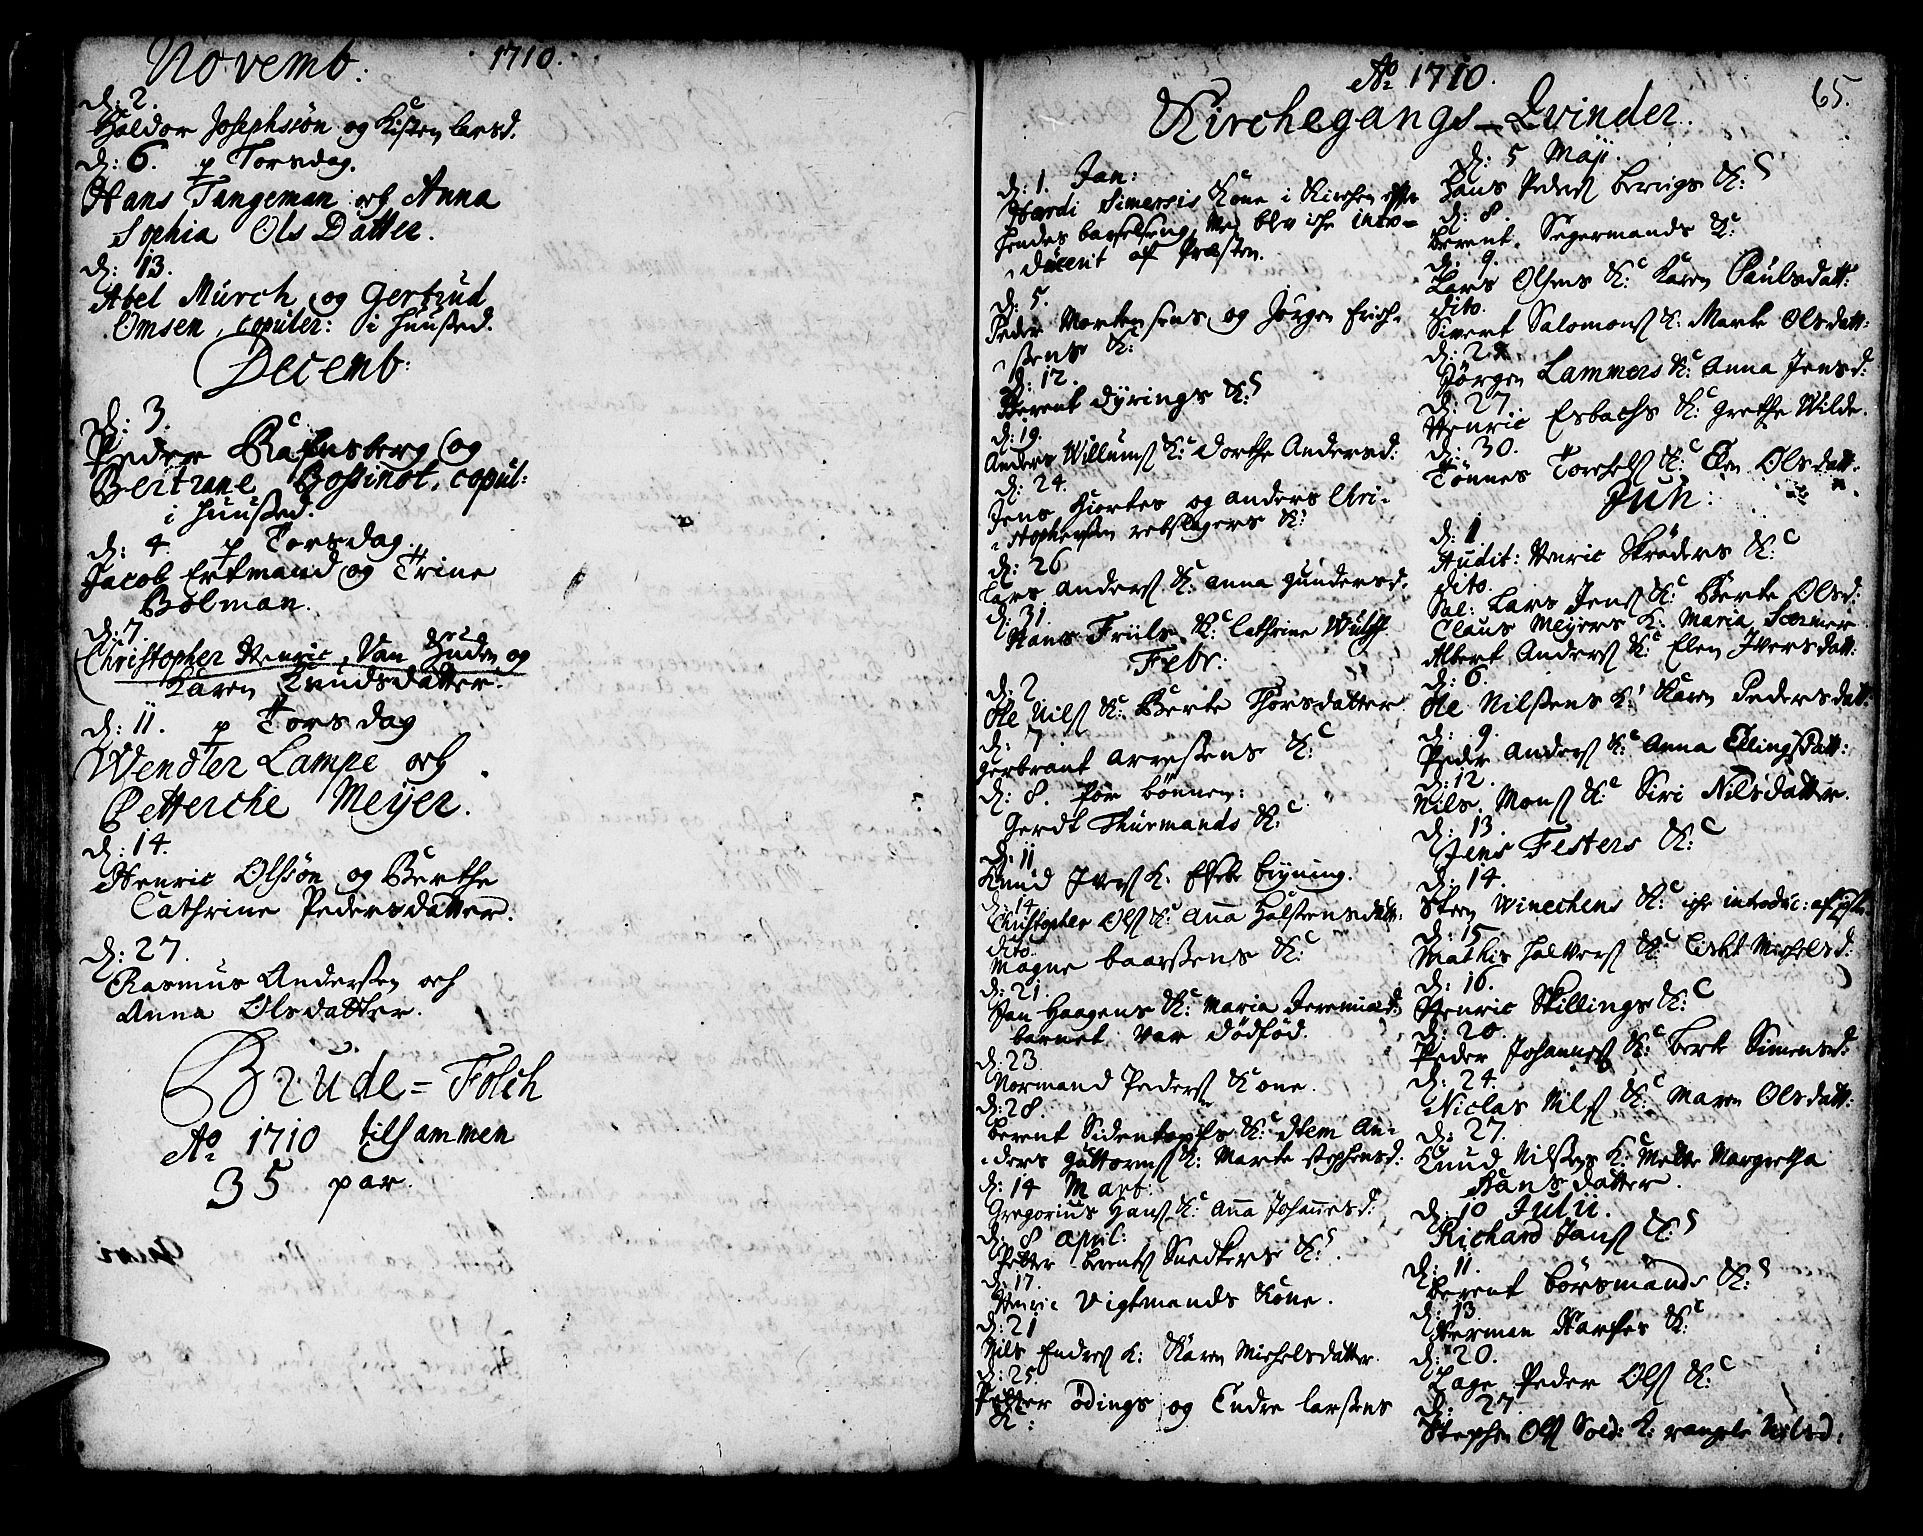 Novemb: 1710.
d: 2.
Haldor Josephsøn og Kisten Larsd.
d: 6. p Torsdag.
Hans Tangeman och Anna
Sophia Ols Datter.
d: 13.
Abel Mürch og Gertrud
Omsen, copuler: i Huuset.
Decemb:
d: 3.
Peder Rafensberg og
Bertrune Bossinot, copul:
i Huuset.
d: 4. p Torsdag.
Jacob Ertmand og Trine
Bolman.
d: 7.
Christopher Henric, Van Huden og
Karen Knudsdatter.
d: 11. p Torsdag
Wendler Lampe och
Petterche Meyer.
d: 14.
Henric Olssøn og Berthe
Cathrine Pedersdatter.
d: 27.
Rasmus Anderssen och
Anna Olsdatter.
Brude = Folch
Ao 1710 tilsammen
35 par.
Ao 1710.
65.
Kirchegangs - Qvinder.
d: 1. Jan:
Hardi Simersis Kone i Kirchen efter
hendes barselseng, men blev iche intro=
ducerit af Præsten.
d: 5.
Peder Mortensens og Jørgen Erich-
sens K:
d: 12.
Berent Dyrings K:
d: 19.
Anders Willums K: Dorthe Andersd:
d: 24.
Jens Hiortes og Anders Chri-
stophersen rebslagers K:
d: 26
Lars Anders K: Anna Gundersd:
d: 31
Hans Friils K: Cathrine Wulff
Febr:
d: 2.
Ole Nils K: Berte Thorsdatter
d: 7
Gerbrant Arressens K:
d: 8. for bønnen:
Gerdt Thurmands K:
d: 11
Knud Ivers K: Eske Bryning.
d: 14.
Christopher Ols K: Anna Halstensdatt:
dito.
Magne Baarsens K:
d: 21.
Jan Haagens K: Maria Jeremiæd:
barnet var dödföd.
d: 23.
Normand Peders Kone.
d: 28.
Berent Sidentopfs K: Item An-
ders Guttorms K: Marte Stephensd:
d: 14 Mart:
Gregorius Hans K: Anna Johannesd:
d: 8 April:
Petter Berents Snedkers K:
d: 17.
Henric Vigtmands Kone.
d: 21
Nils Endres K: Karen Michelsdatter.
d: 25.
Petter Ödings og Endre Larsens
K:
d: 5 Maji.
Hans Peders Berigs K:
d: 8.
Berent Segermands K:
d: 9.
Lars Olsens K: Karen Paulsdatt:
dito.
Sivert Salomons K: Marte Olsdatt:
d: 24.
Jørgen Lammers K: Anna Jensd:
d: 27.
Henric Esbachs K: Grethe Wilde.
d: 30.
Tønnes Torchels K: Elen Olsdatt:
Juni:
d: 1.
Audit: Henric Skrøders K:
dito.
Sal: Lars Jens K: Berte Olsd:
Claus Meyers K: Maria Sormer
Albert Anders K: Elen Iversdatt:
d: 6.
Ole Nilsens K: Karen Pedersdatt:
d: 9.
Peder Anders K: Anna Ellingsdatt:
d: 12.
Nils Mons K: Siri Nilsdatter.
d: 13.
Jens Festers K:
d: 14.
Sten Winechens K: iche introduc: af
d: 15
Mathis Halvors K: Lisbt Michelsd:
d: 16.
Henric Skillings K:
d: 20.
Peder Johannes K: Berte Simensd:
d: 24.
Niclas Nils K: Maren Olsdatt:
d: 27.
Knud Nilsens K: Mette Margretha
Hansdatter.
d: 10 Julii.
Richard Jans K:
d: 11.
Berent Børsmands K:
d: 13
Herman Harches K:
d: 20.
Lage Peder Ols K:
d: 27.
Stephen Ols Sold: K: Nilsd: